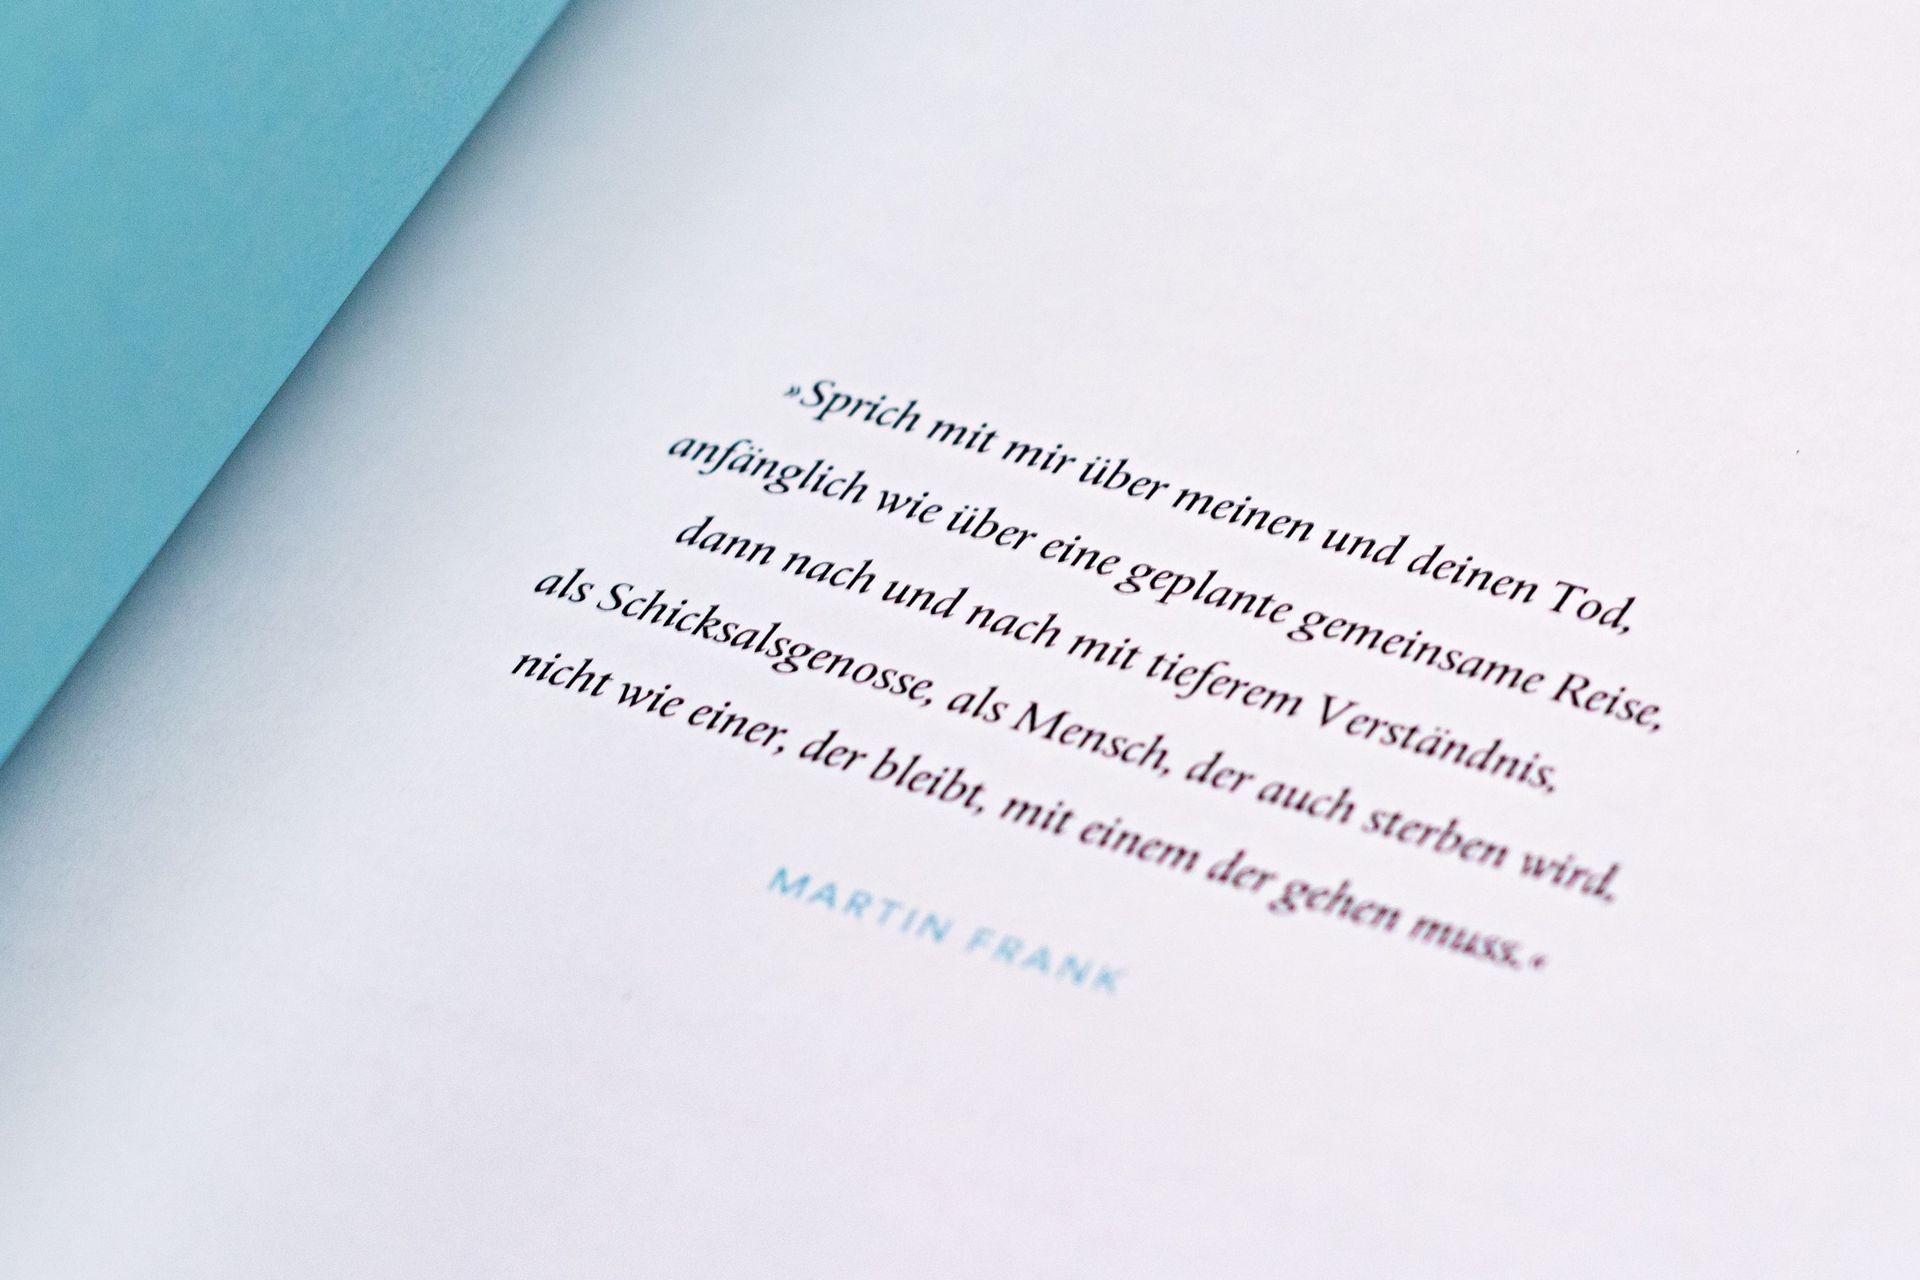 »Sprich mit mir über meinen und deinen Tod,
anfänglich wie über eine geplante gemeinsame Reise,
dann nach und nach mit tieferem Verständnis,
als Schicksalsgenosse, als Mensch, der auch sterben wird,
nicht wie einer, der bleibt, mit einem der gehen muss.«
MARTIN FRANK